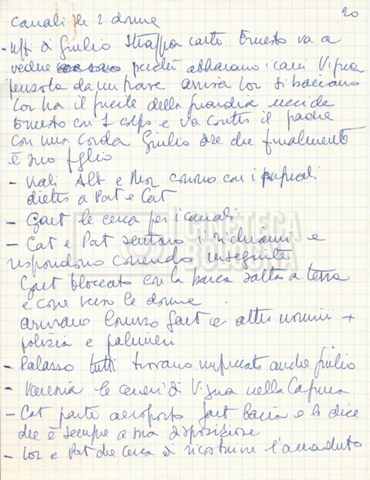 canali le 2 donne
20
- Uff di Giulio strappa carte Ernesto va a
vedere perché abbaiano i cani Vipra
penzola da un trave arriva Lor si baciano
Lor ha il fucile della guardia uccide
Ernesto con 1 colpo e va contro il padre
con una corda Giulio dice che finalmente
è suo figlio
- Kali Alk e Mor corrono con i pugnali
dietro a Pat e Cat
- Gaet le cerca per i canali
- Cat e Pat sentono i richiami e
rispondono correndo inseguite
Gaet bloccato con la barca salta a terra
e corre verso le donne
arrivano Lorenzo Gaet e altri uomini +
polizia e
- Palazzo tutti trovano impiccato anche Giulio
- Venezia le ceneri di Vipra nella
- Cat parte aeroporto Gaet bacia e le dice
che è sempre a sua disposizione
- Lor e Pat che cerca di ricostruire l'accaduto
CINETECA
BOLOGNA